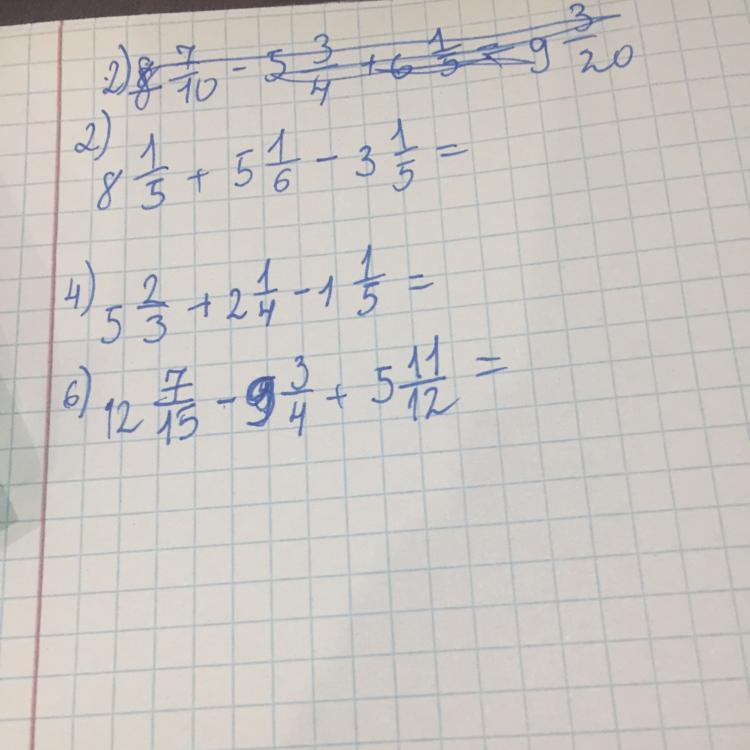 2) 8 7/10 - 5 3/4 + 6 1/5 = 9 3/20
2) 8 1/5 + 5 1/6 - 3 1/5 =
4) 5 2/3 + 2 1/4 - 1 1/5 =
6) 12 7/15 - 9 3/4 + 5 11/12 =